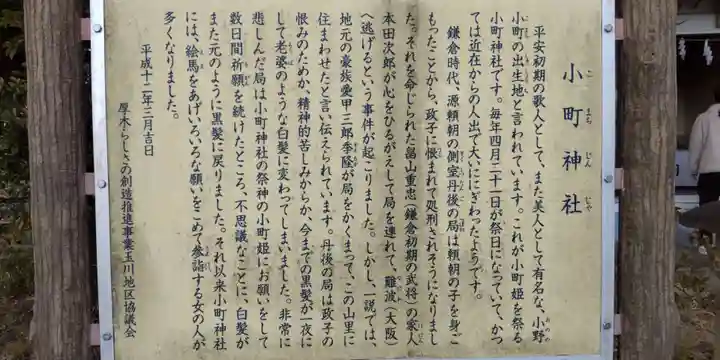 小町神社
こまちじんじゃ
平安初期の歌人として、また美人として有名な、小野
おのの
小町の出生地と言われています。これが小町姫を祭る
小町神社です。毎年四月二十一日が祭日になっていて、かつ
ては近在からの人出で大いににぎわったようです。
鎌倉時代、源頼朝の側室丹後の局は頼朝の子を身ご
もったことから、政子に恨まれて処刑されそうになりまし
た。それを命じられた畠山重忠（鎌倉初期の武将）の家人
本田次郎が心をひるがえして局を連れて、難波（大阪）
へ逃げるという事件が起こりました。しかし、一説では、
地元の豪族愛甲三郎季隆が局をかくまって、この山里に
住まわせたと言い伝えられています。丹後の局は政子の
恨みのためか、精神的苦しみからか、今までの黒髪が一夜に
して老婆のような白髪に変わってしまいました。非常に
悲しんだ局は小町神社の祭神の小町姫にお願いをして
数日間祈願を続けたところ、不思議なことに、白髪が
また元のように黒髪に戻りました。それ以来小町神社
には、絵馬をあげいろいろな願いをこめて参詣する女の人が
多くなりました。
平成十二年三月吉日
厚木らしさの創造推進事業玉川地区協議会